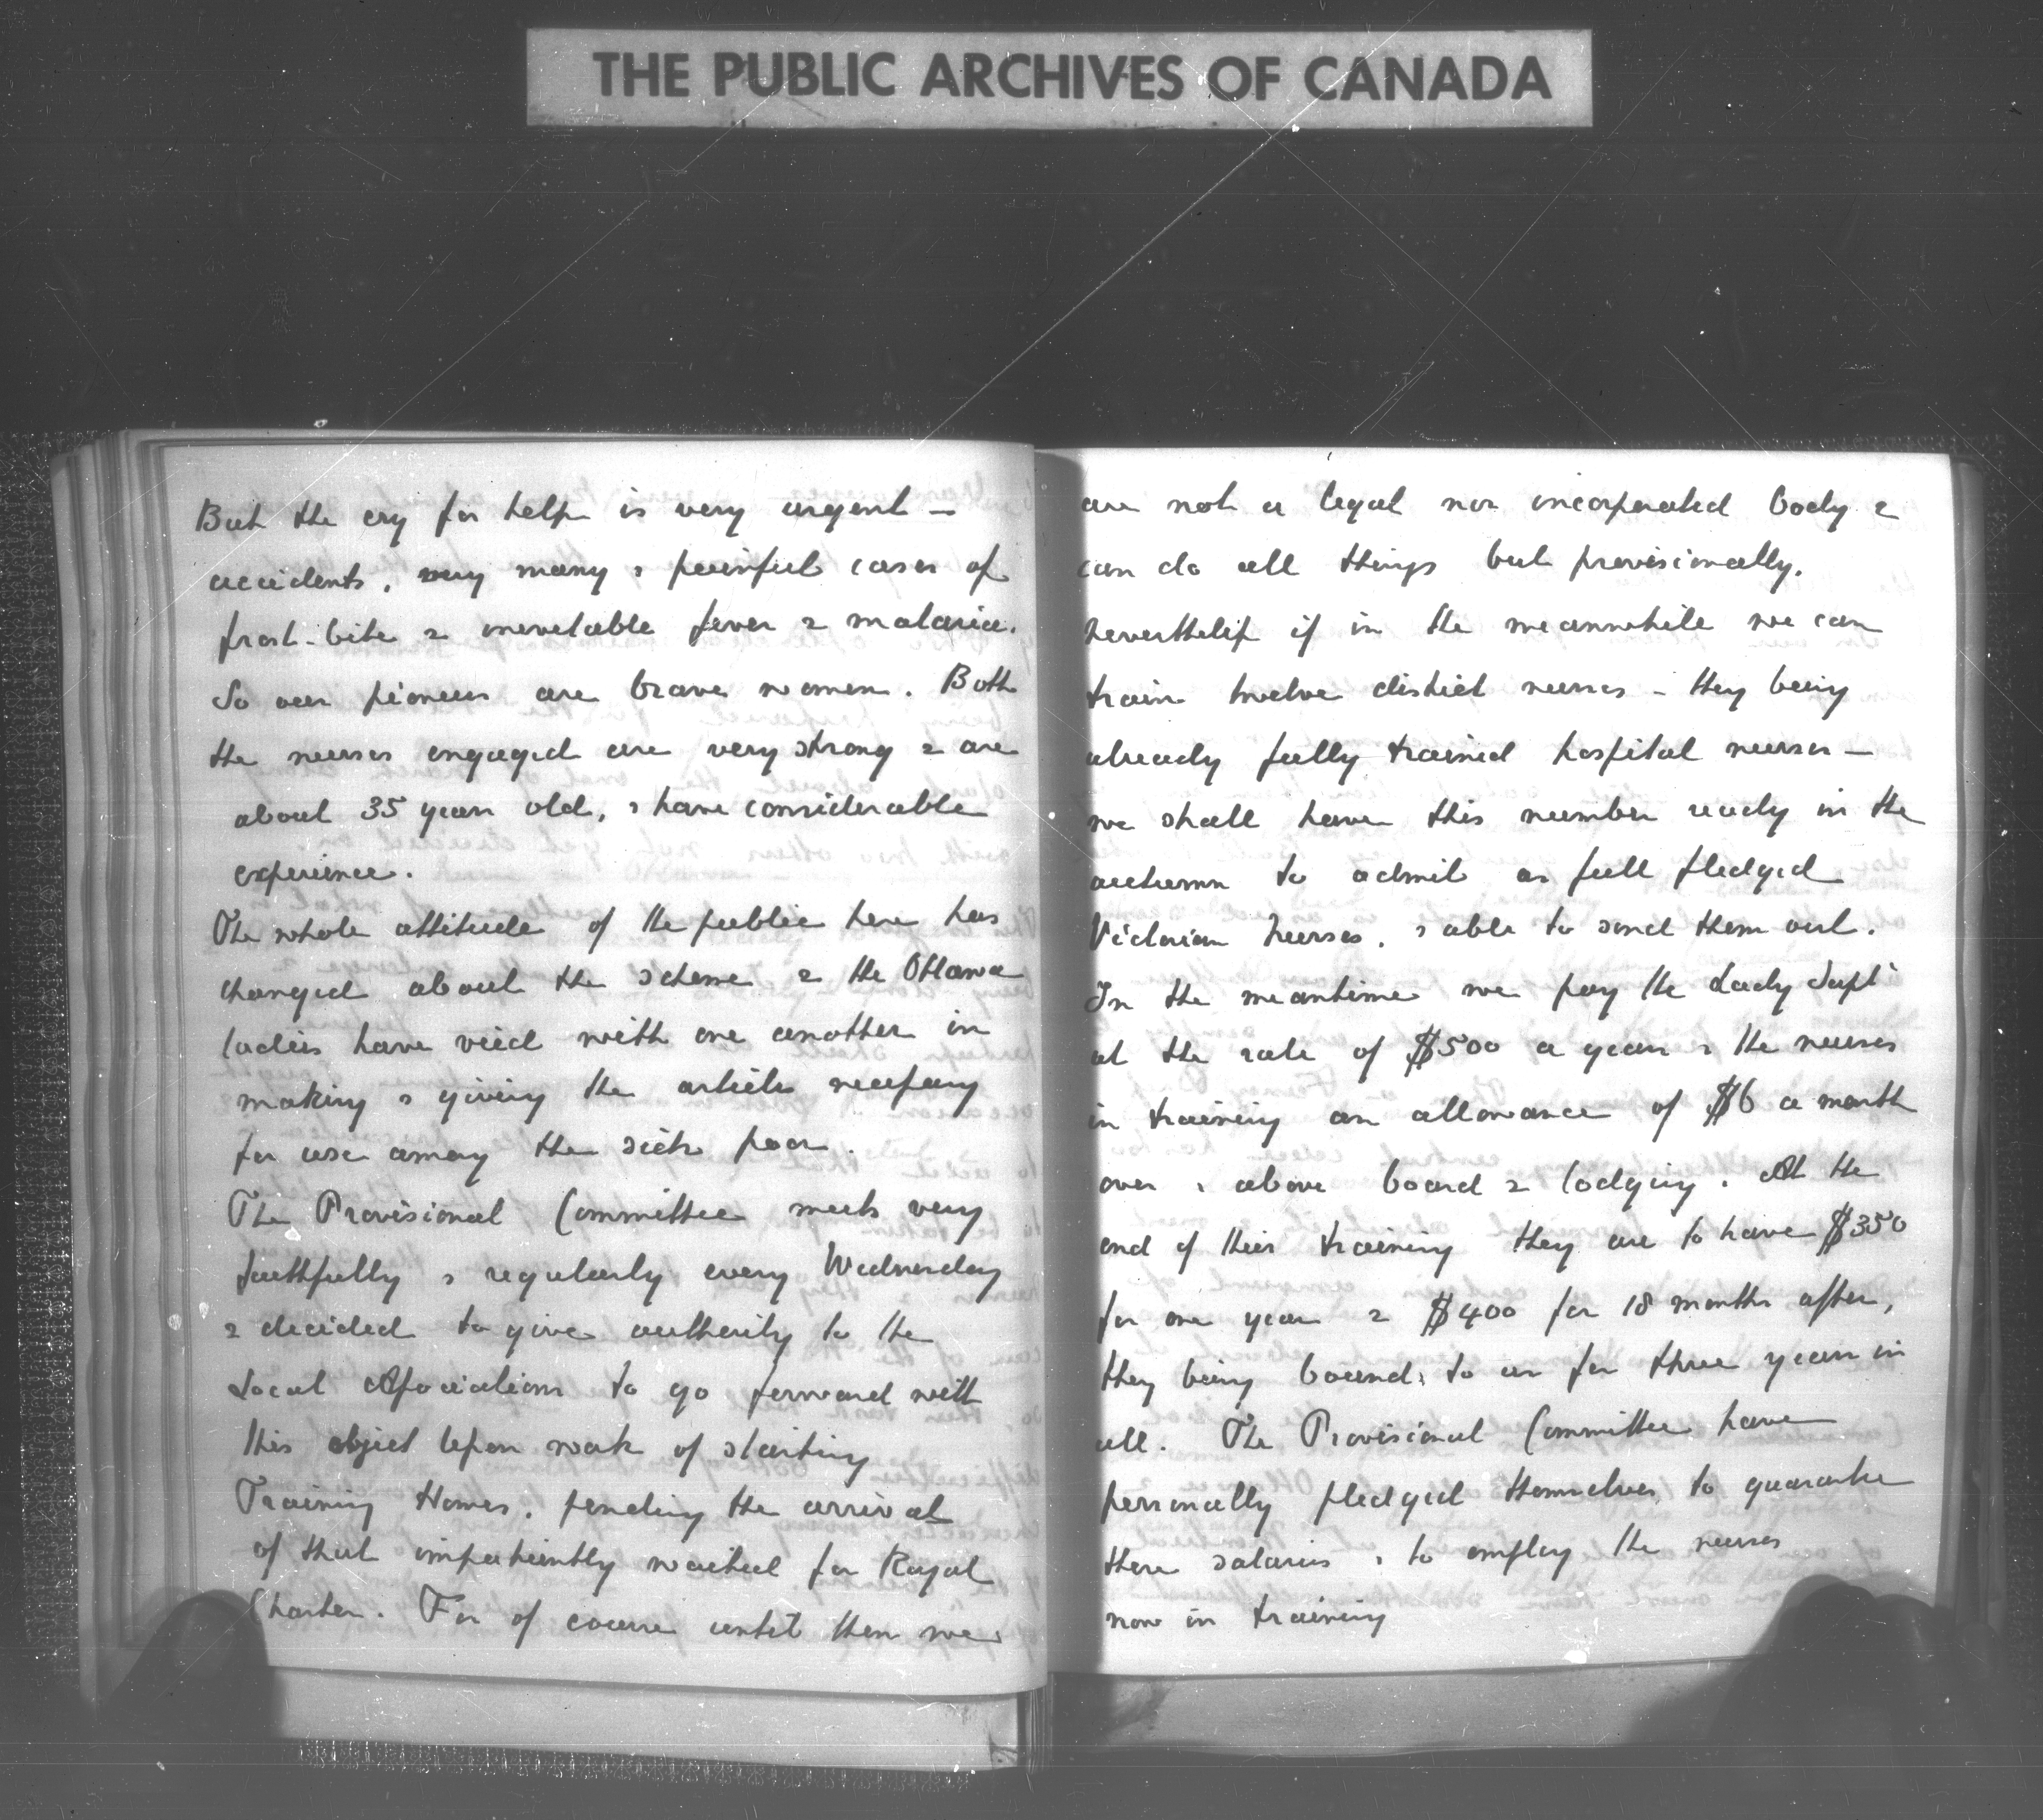 THE PUBLIC ARCHIVES OF CANADA
But the cry for help is very urgent —
accidents, very many & painful cases of
frost-bite & inevetable fever & malaria.
So our pioneers are brave women. Both
the nurses engaged are very strong & are
about 35 years old, & have considerable
experience.
The whole attitude of the public here has
changed about the scheme & the Ottawa
ladies have vied with one another in
making & giving the articles necessary
for use among the sick poor.
The Provisional Committee meets very
faithfully & regularly every Wednesday
& decided to give authority to the
Local Associations to go forward with
this object lesson work of starting
Training Homes, pending the arrival
of that impatiently waited for Royal
Charter. For of course until then we
are not a legal nor incorporated body &
can do all things but provisionally.
Nevertheless if in the meanwhile we can
train twelve district nurses — they being
already fully trained hospital nurses —
we shall have this number ready in the
autumn to admit as full fledged
Victorian Nurses, & able to send them out.
In the meantime we pay the Lady Supt
at the rate of $500 a year & the nurses
in training an allowance of $6 a month
over & above board & lodging. At the
end of their training they are to have $350
for one year & $400 for 18 months after,
they being bound to us for three years in
all. The Provisional Committee have
personally pledged themselves to guarantee
these salaries & to employ the nurses
now in training